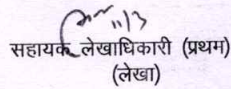 11/3
सहायक लेखाधिकारी (प्रथम)
(लेखा)